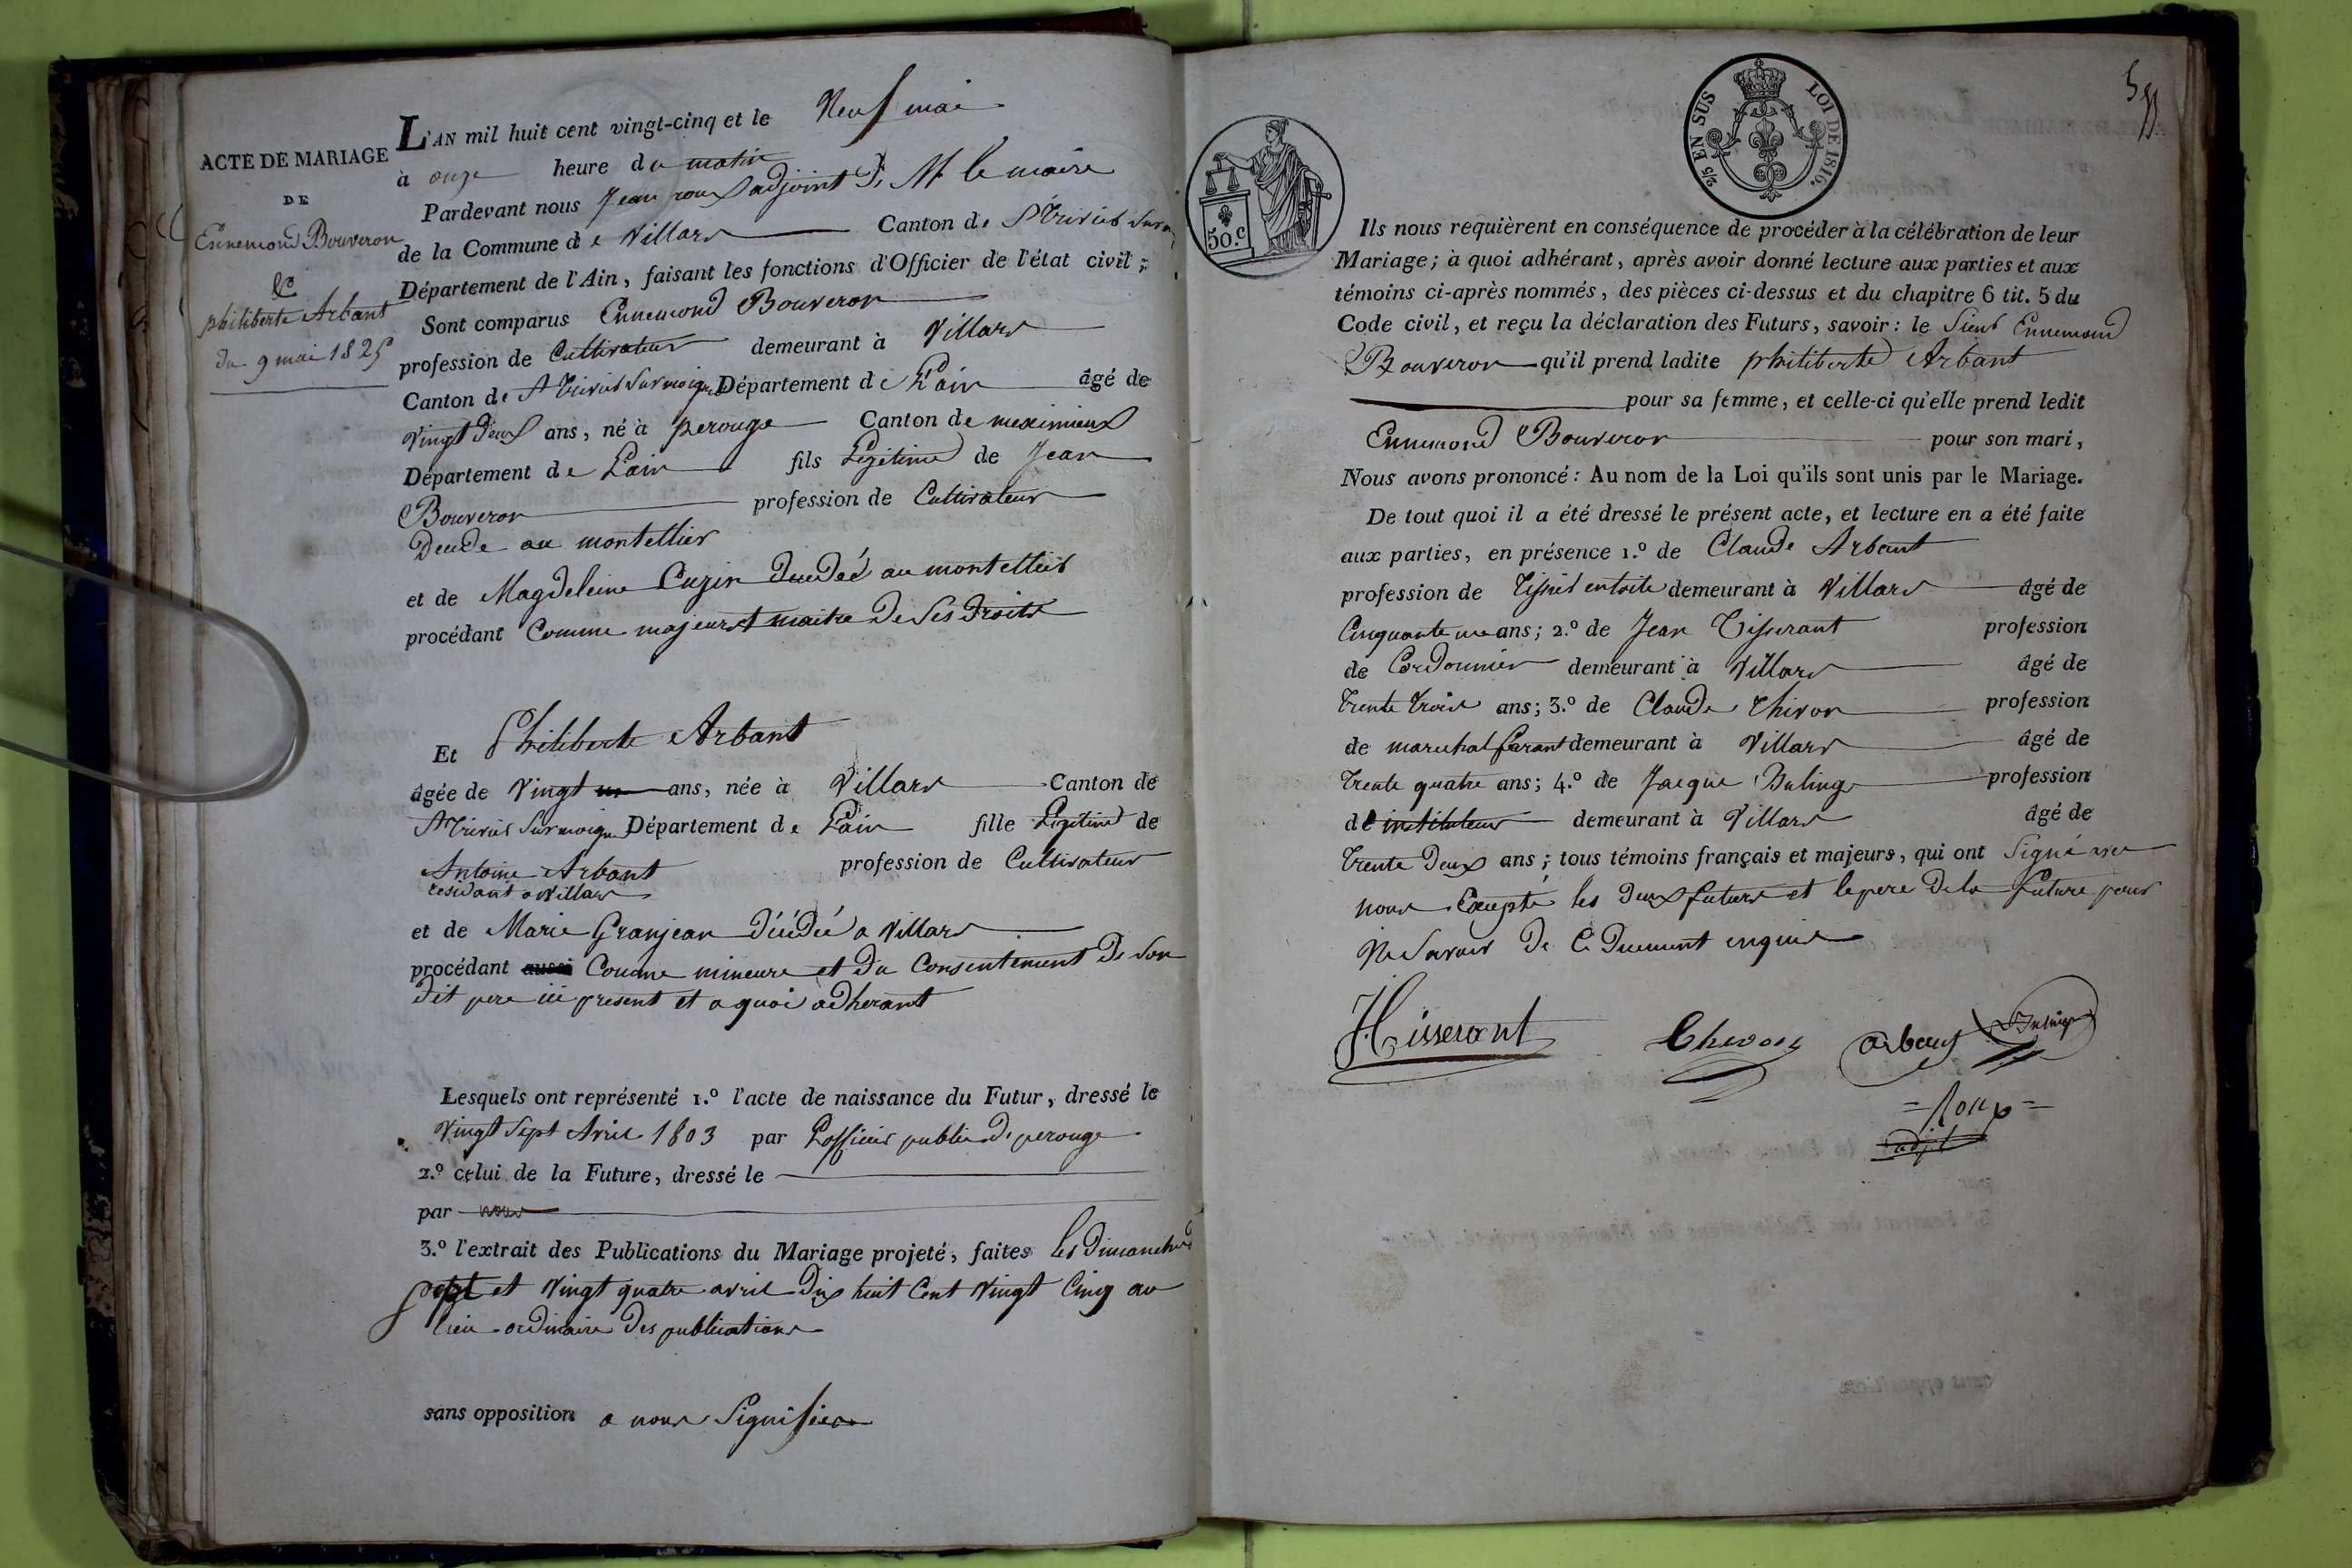 ACTE DE MARIAGE
DE
Ennemond Bouveron
&
philiberte Arbant
du 9 mai 1825
L'AN mil huit cent vingt-cinq et le Neuf mai
à onze heure du matin
Pardevant nous Jean roux adjoint de M le maire
de la Commune de Villars Canton de St Trivier Sur
Département de l'Ain, faisant les fonctions d'Officier de l'état civil;
Sont comparus Ennemond Bouveron
profession de Cultivateur demeurant à Villars
Canton de St Trivier Surmoignans Département de L'ain âgé de
vingt deux ans, né à perouge Canton de meximieux
Département de Lain fils Legitime de Jean
Bouveron profession de Cultivateur
Decede au montellier
et de Magdeleine Cuzin decedée au montellier
procédant Comme majeur et maitre De Ses droits
Et Philiberte Arbant
âgée de Vingt un ans, née à Villars Canton de
St Trivier Surmoignans Département de Lain fille Legitime de
Antoine Arbant profession de Cultivateur
residant a villars
et de Marie Granjean décédée a Villars
procédant aussi Comme mineure et du Consentement De Son
dit pere ici present et a quoi adherant
Lesquels ont représenté 1.º l'acte de naissance du Futur, dressé le
Vingt Sept Avril 1803 par Lofficier public de perouge
2.º celui de la Future, dressé le
par nous
3.º l'extrait des Publications du Mariage projeté, faites les dimanches
et Vingt quatre avril dix huit Cent Vingt Cinq au
lieu ordinaire Des publications
sans opposition a nous Signifiée
50.c
2/5 EN SUS
LOI DE 1816.
Ils nous requièrent en conséquence de procéder à la célébration de leur
Mariage; à quoi adhérant, après avoir donné lecture aux parties et aux
témoins ci-après nommés, des pièces ci-dessus et du chapitre 6 tit. 5 du
Code civil, et reçu la déclaration des Futurs, savoir: le Sieur Ennemond
Bouveron qu'il prend ladite philiberte Arbant
pour sa femme, et celle-ci qu'elle prend ledit
Ennemond Bouveron pour son mari,
Nous avons prononcé: Au nom de la Loi qu'ils sont unis par le Mariage.
De tout quoi il a été dressé le présent acte, et lecture en a été faite
aux parties, en présence 1.º de Claude Arbant
profession de Tissier en toile demeurant à Villars âgé de
Cinquante un ans; 2.º de Jean Tisserant profession
de Cordonnier demeurant à Villars âgé de
Trente trois ans; 3.º de Claude Thivon profession
de marechal ferant demeurant à Villars âgé de
Trente quatre ans; 4.º de Jacque profession
de instituteur demeurant à Villars âgé de
Trente Deux ans; tous témoins français et majeurs, qui ont Signé avec
nous Excepté les deux futurs et le pere De la future pour
Ne Savoir De Ce Duement enquis
Tisserant
arbant
Roux
adjt